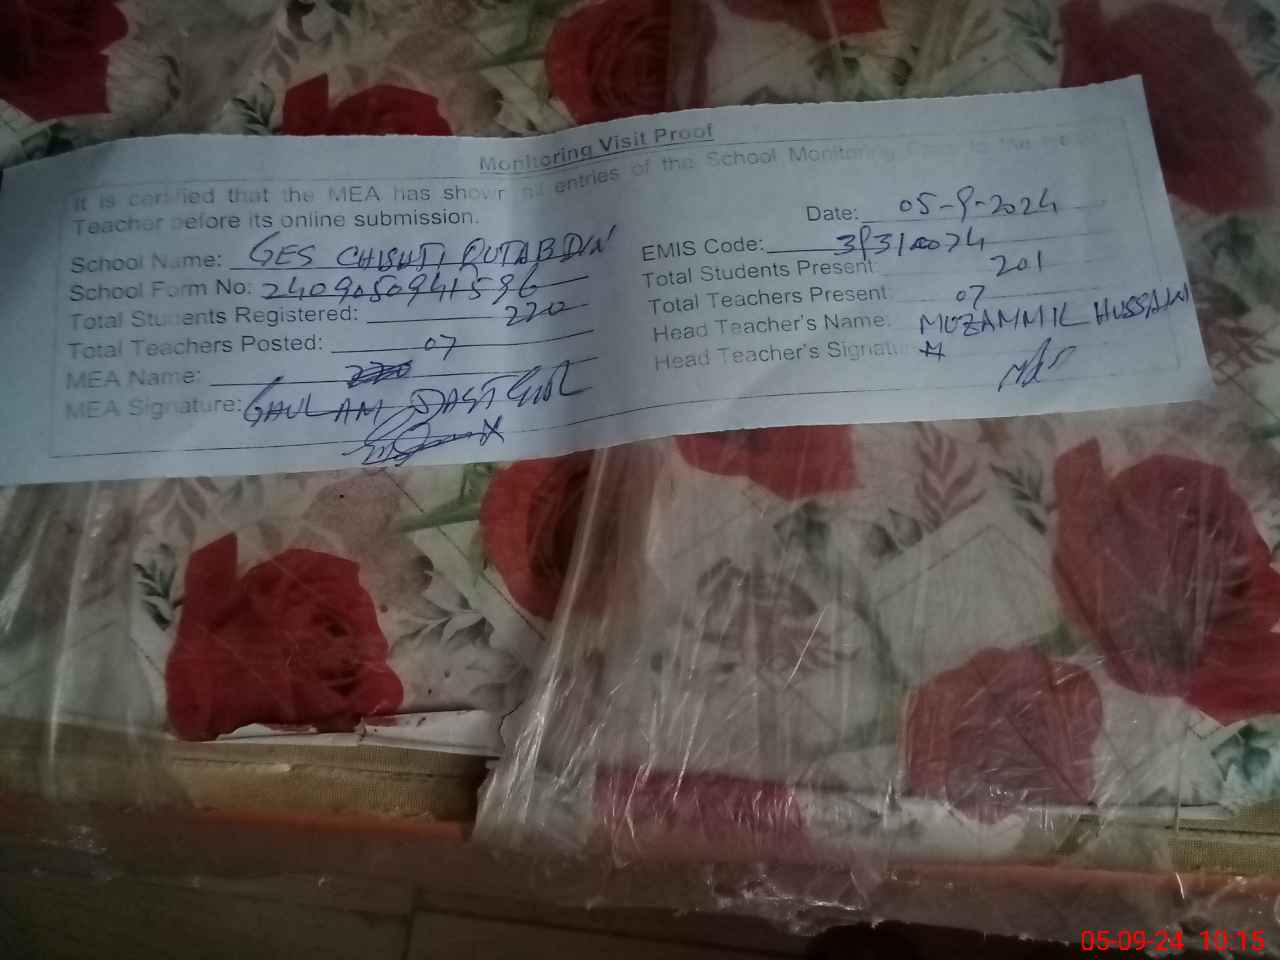 Monitoring Visit Proof
It is certified that the MEA has shown all entries of the School Monitoring to the
Teacher before its online submission.
Date: 05-9-2024
School Name: GES CHISHTI QUTABDIN
EMIS Code:
School Form No: 2409050941596
Total Students Present: 201
Total Students Registered: 220
Total Teachers Present 07
Total Teachers Posted: 07
Head Teacher's Name: MUZAMMIL HUSSAIN
MEA Name: 220
Head Teacher's Signature
MEA Signature: GHULAM DASTGIR
05-09-24 10:15